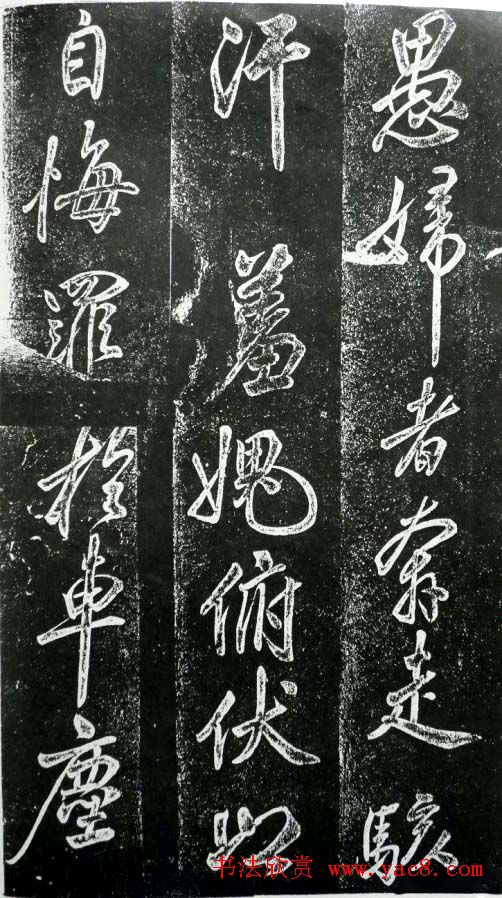 愚婦者奔走駭
汗羞媿俯伏以
自悔罪於車塵
书法欣赏 www.yac8.com